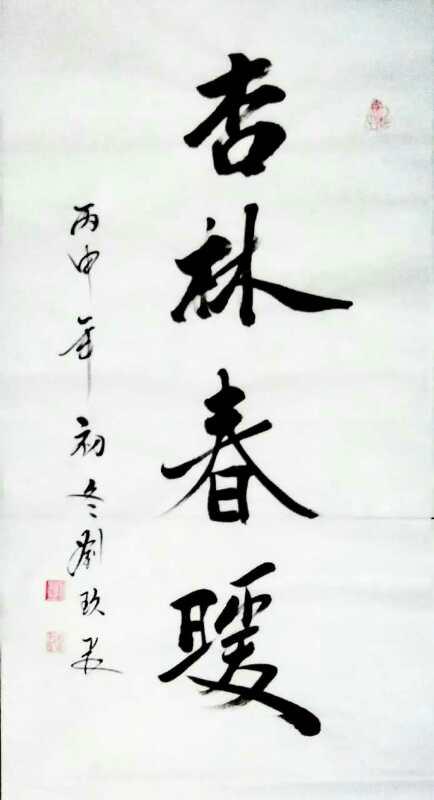 杏林春暖
丙申年初冬刘玖